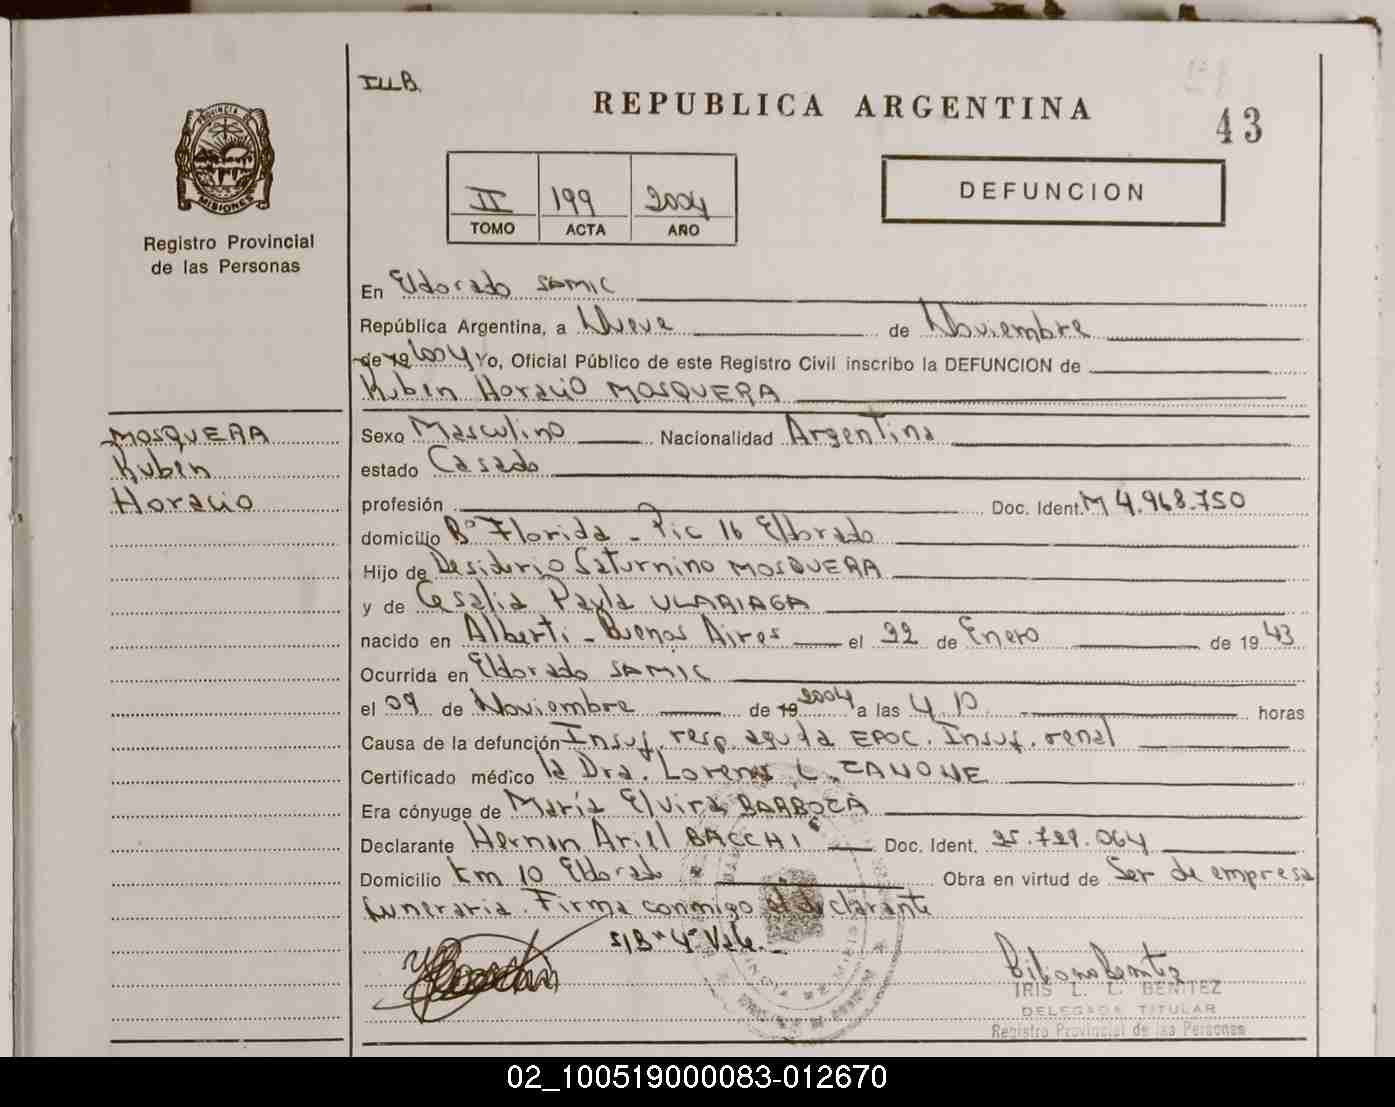 REPUBLICA ARGENTINA
43
DEFUNCION
PROVINCIA DE
MISIONES
Registro Provincial
de las Personas
II 199 2004
TOMO ACTA AÑO
En Eldorado SAMIC
República Argentina, a Nueve de Noviembre
de 19 2004 Yo, Oficial Público de este Registro Civil inscribo la DEFUNCION de
Ruben Horacio MOSQUERA
MOSQUERA
Ruben
Horacio
Sexo Masculino Nacionalidad Argentina
estado Casado
profesión Doc. Ident. M 4.968.750
domicilio Bº Florida - Pic 16 Eldorado
Hijo de Desiderio Saturnino MOSQUERA
y de Cesalia Paula ULARIAGA
nacido en Alberti - Buenos Aires el 22 de Enero de 1943
Ocurrida en Eldorado SAMIC
el 09 de Noviembre de 19 2004 a las 4,10 horas
Causa de la defunción Insuf. resp. aguda EPOC. Insuf. renal
Certificado médico la Dra. Lorena L. ZANONE
Era cónyuge de María Elvira BARBOZA
Declarante Hernan Ariel BACCHI Doc. Ident. 25.729.064
Domicilio Km 10 Eldorado Obra en virtud de Ser de empresa
funeraria. Firma conmigo el declarante
S/B "4" Vale.
IRIS L. L. BENITEZ
DELEGADA TITULAR
Registro Provincial de las Personas
02_100519000083-012670